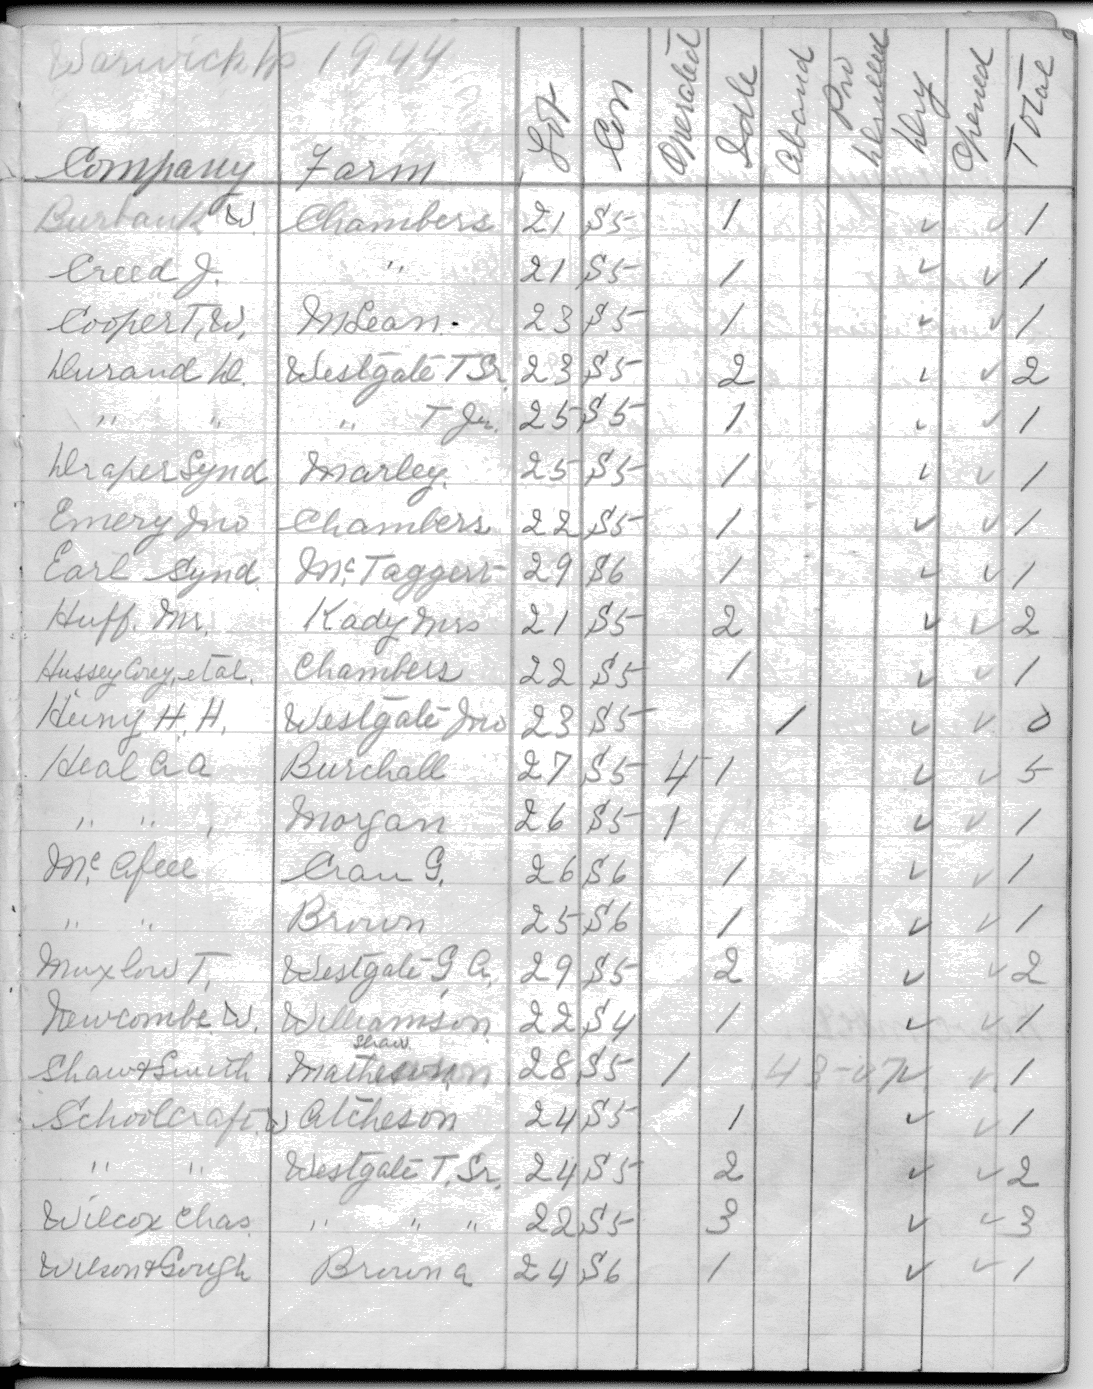 Warwick Tp 1944
Company Farm Lot Con Operated Idle Aband Pro Drilled Dry Opened Total
Burbank W. Chambers 21 S5 1 ✓ ✓ 1
Creed J. " 21 S5 1 ✓ ✓ 1
Cooper T. W. McLean. 23 S5 1 ✓ ✓ 1
Durand D. Westgate T Sr. 23 S5 2 ✓ ✓ 2
" " " T Jr. 25 S5 1 ✓ ✓ 1
Draper Synd Marley. 25 S5 1 ✓ ✓ 1
Emery Jno Chambers 22 S5 1 ✓ ✓ 1
Earl Synd. Mc Taggert 29 S6 1 ✓ ✓ 1
Huff. Mr. Kady Mrs 21 S5 2 ✓ ✓ 2
Hussey Corey, et al. Chambers 22 S5 1 ✓ ✓ 1
Henry H. H. Westgate Jno 23 S5 1 ✓ ✓ 0
Heal A A Burchall 27 S5 4 1 ✓ ✓ 5
" " " Morgan 26 S5 1 ✓ ✓ 1
Mc Afee Cran G. 26 S6 1 ✓ ✓ 1
" " Brown 25 S6 1 ✓ ✓ 1
Muxlow T. Westgate G. A. 29 S5 2 ✓ ✓ 2
Newcombe W. Williamson 22 S4 1 ✓ ✓ 1
Shaw
Shaw & Smith Matheson 28 S5 1 ✓ ✓ 1
Schoolcraft W Atcheson 24 S5 1 ✓ ✓ 1
" " Westgate T. Sr. 24 S5 2 ✓ ✓ 2
Wilcox Chas. " " " 22 S5 3 ✓ ✓ 3
Wilson & Gough Brown A 24 S6 1 ✓ ✓ 1